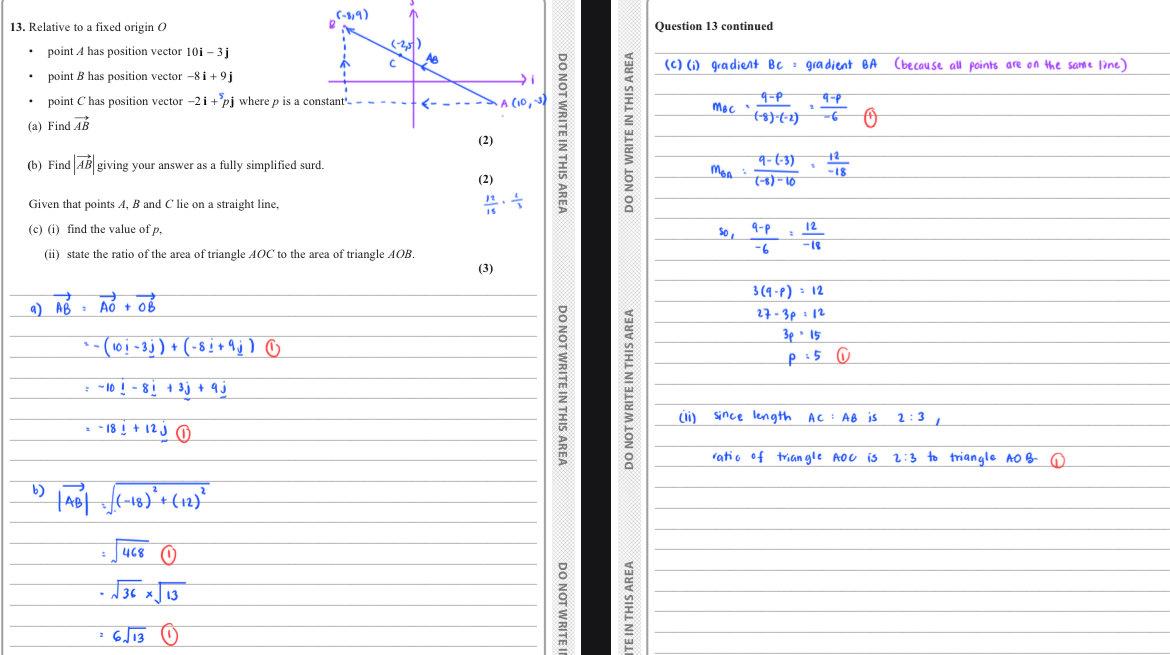 13. Relative to a fixed origin O
• point A has position vector 10i − 3j
• point B has position vector −8i + 9j
• point C has position vector −2i + pj where p is a constant
5
(a) Find AB
(2)
(b) Find |AB| giving your answer as a fully simplified surd.
(2)
Given that points A, B and C lie on a straight line,
(c) (i) find the value of p,
(ii) state the ratio of the area of triangle AOC to the area of triangle AOB.
(3)
B (-8,9)
(-2,5)
C
AB
i
A (10,-3)
12/18
a) AB = AO + OB
= -(10i - 3j) + (-8i + 9j) (1)
= -10i - 8i + 3j + 9j
= -18i + 12j (1)
b) |AB| = √(-18)² + (12)²
= √468 (1)
= √36 × √13
= 6√13 (1)
DO NOT WRITE IN THIS AREA
DO NOT WRITE IN THIS AREA
DO NOT WRITE I
DO NOT WRITE IN THIS AREA
DO NOT WRITE IN THIS AREA
TE IN THIS AREA
Question 13 continued
(c) (i) gradient BC = gradient BA (because all points are on the same line)
mBC = 9-p/(-8)-(-2) = 9-p/-6 (1)
mBA = 9-(-3)/(-8)-10 = 12/-18
so, 9-p/-6 = 12/-18
3(9-p) = 12
27 - 3p = 12
3p = 15
p = 5 (1)
(ii) since length AC : AB is 2 : 3 ,
ratio of triangle AOC is 2:3 to triangle AOB (1)